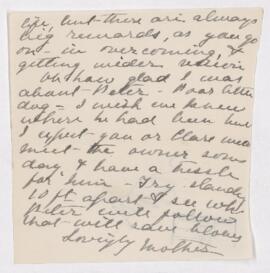 life, but there are always
big rewards, as you go
on in overcoming, &
getting wider vision
Oh how glad I was
about Peter - Poor little
dog - I wish we knew
where he had been but
I expect you or Clare will
meet the owner some
day & have a tussle
for him - Try standing
10 ft apart & see who
Peter will follow
that will save blows
Lovingly Mother